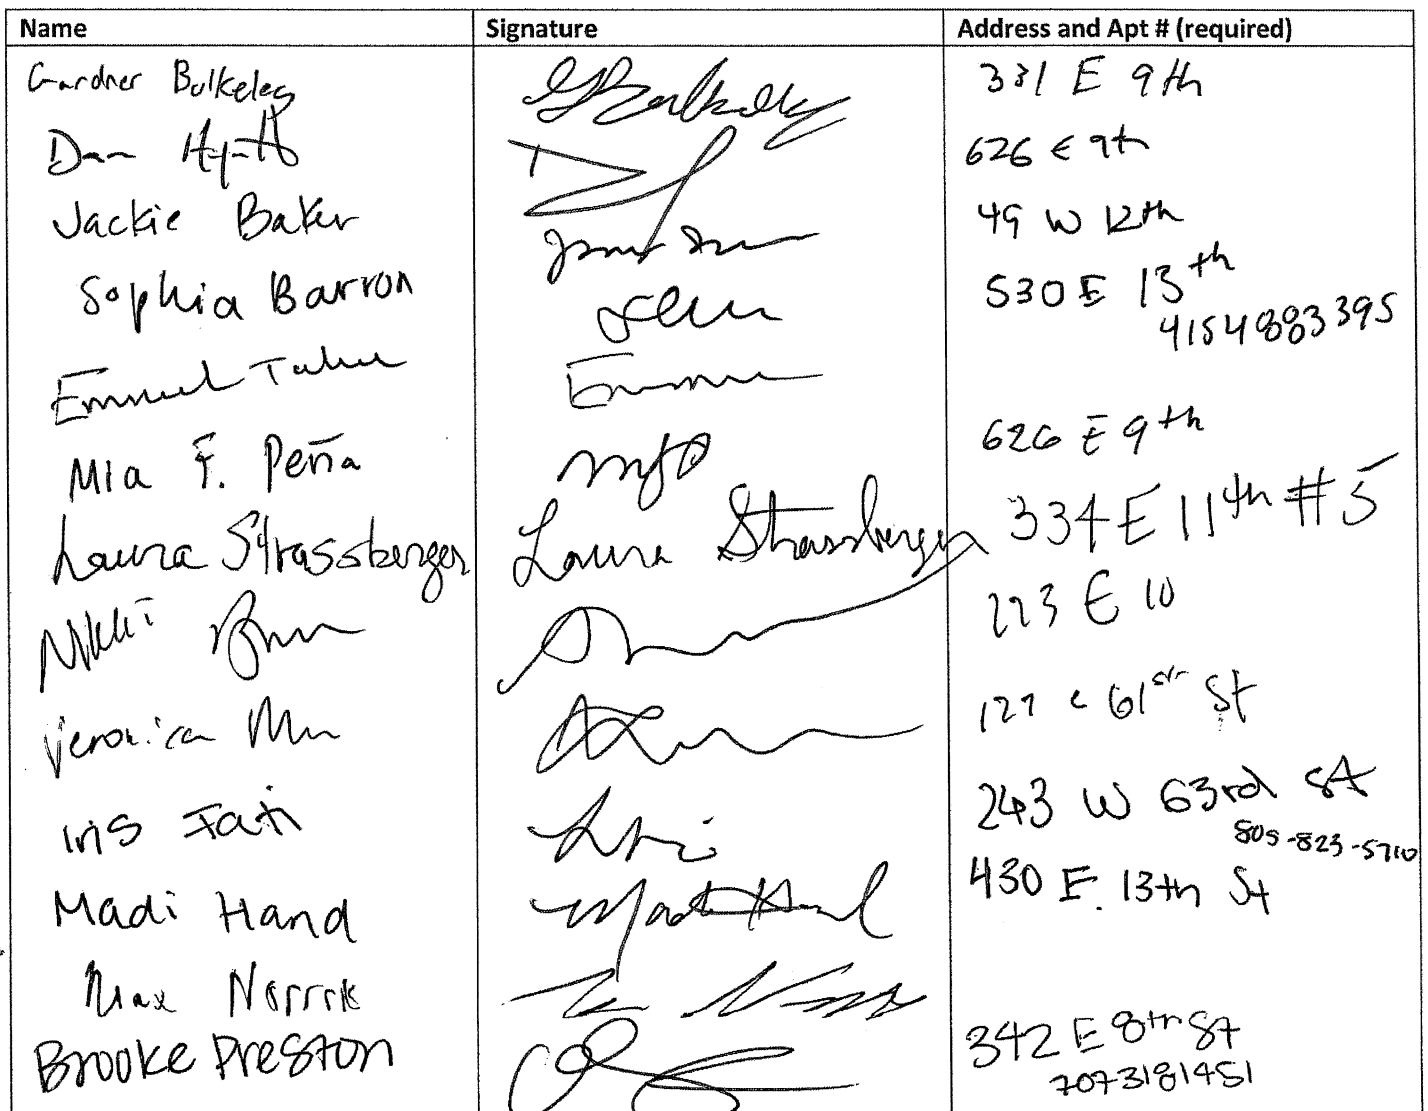 Name Signature Address and Apt # (required)
Gardner Bulkeley GBulkeley 331 E 9th
Dan Hyatt 626 E 9th
Jackie Baker 49 W 12th
Sophia Barron 530 E 13th
4154883395
Mia F. Peña MFP 626 E 9th
Laura Strassberger Laura Strassberger 334 E 11th #5
Nikki 223 E 10
Veronica 127 E 61st St
Iris 243 W 63rd St
805-823-5710
Madi Hand Madi Hand 430 E. 13th St
Max
Brooke Preston 342 E 8th St
7073181451